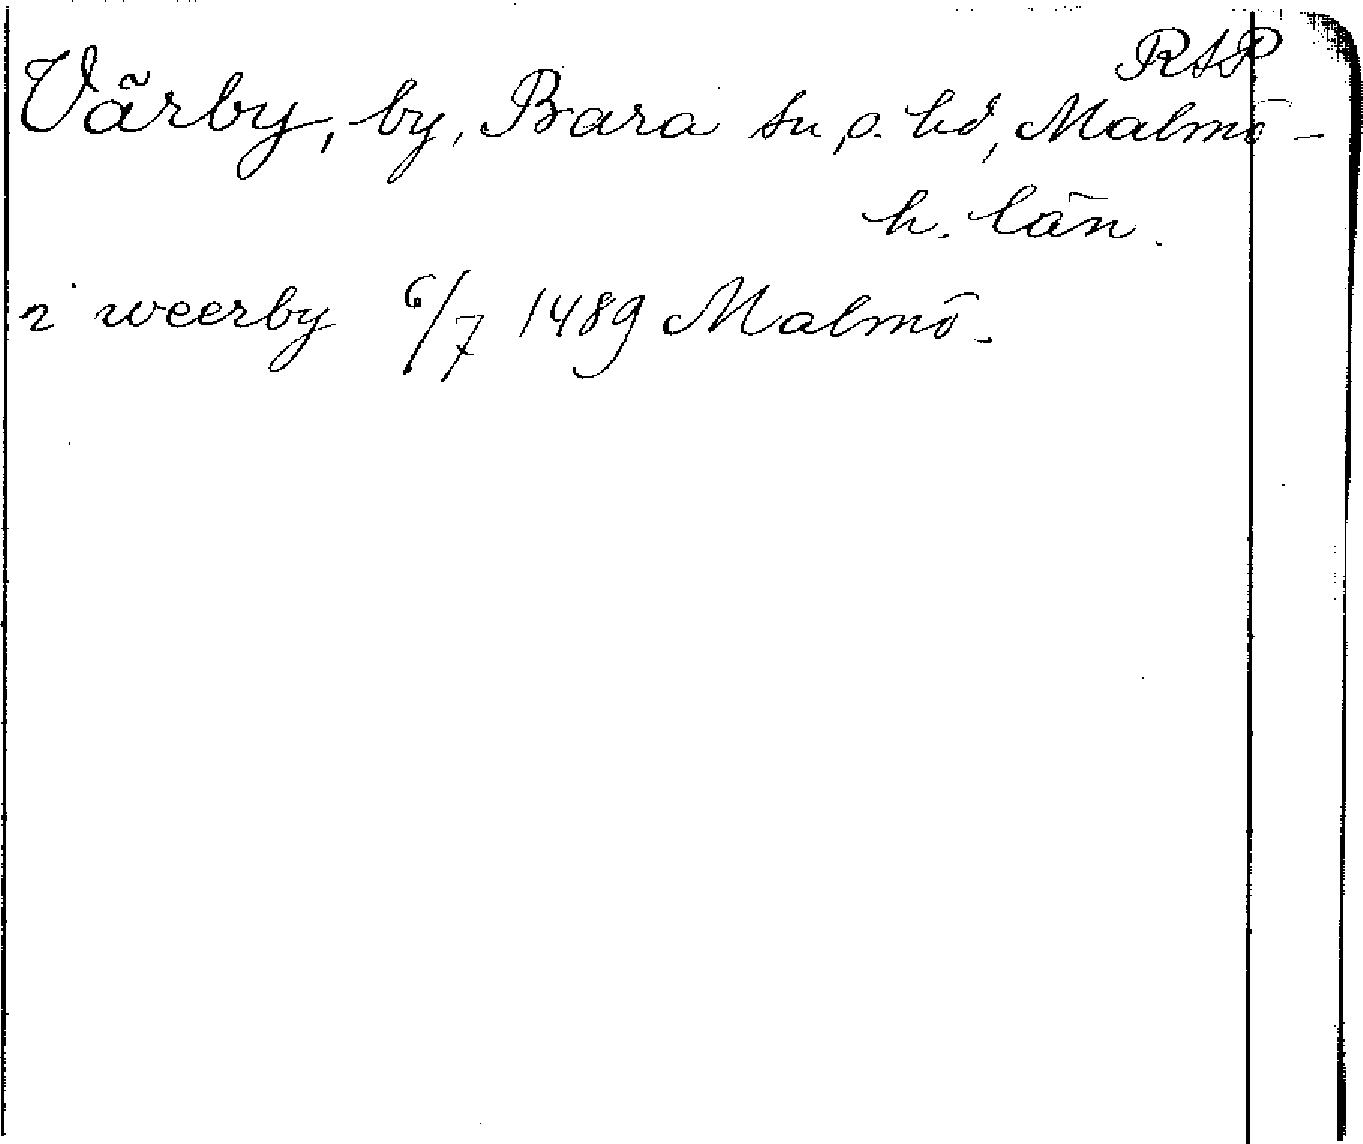 RAP
Värby, by, Bara sn, o. hd, Malmö-
h. län.
i weerby 6/7 1489 Malmö.